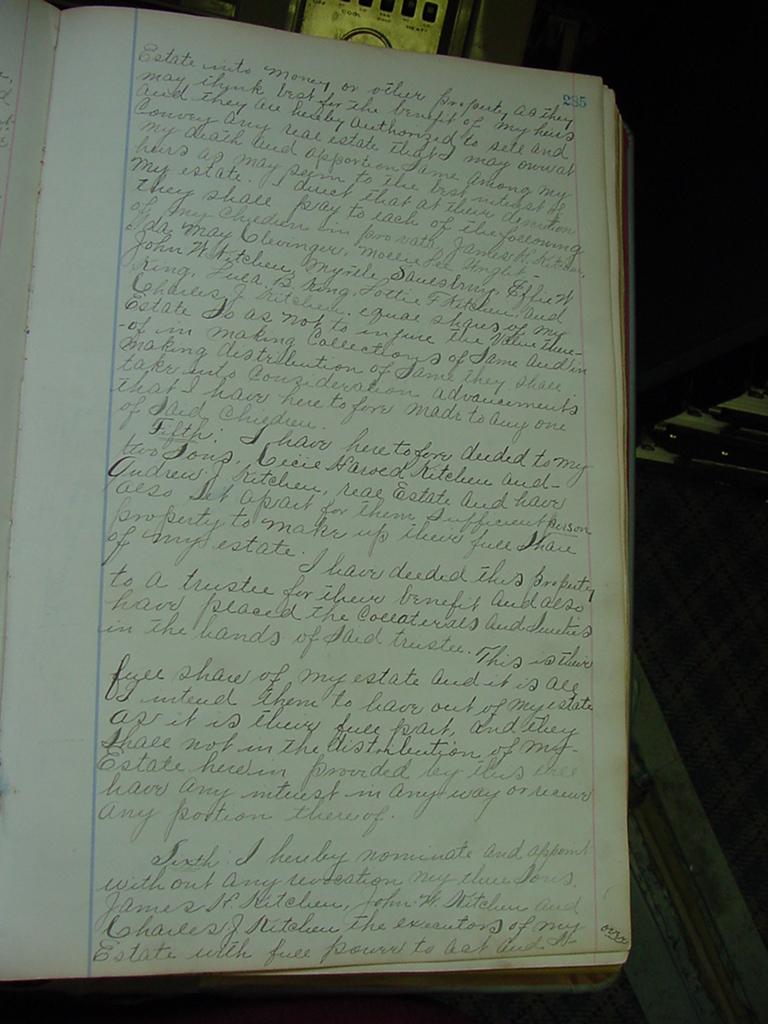 285
Estate into money or other property as they
may think best for the benefit of my heirs
and they are hereby authorized to sell and
Convey any real estate that I may own at
my death and apportion same among my
heirs as may seem to the best interest of
my estate. I direct that at their discretion
they shall pay to each of the following
of my Children in pro rata, James H. Kitchen,
Ida May Clevinger, Mollie Lee Wright
John W. Kitchen, Myrtle Saulsbury, Effie W
King, Lula B. King, Lottie F Kitchen, and
Charles J Kitchen. equal shares of my
Estate So as not to injure the Value there-
-of in making Collections of Same and in
making distribution of Same they shall
take into Consideration advancements
that I have here to fore made to any one
of Said Children.
Fifth: I have here to fore deeded to my
two Sons, Cecil Harold Kitchen and
Andrew J Kitchen, real Estate and have
also Set apart for them Sufficient person
property to make up their full Share
of my estate. I have deeded this property
to a trustee for their benefit and also
have placed the Collaterals and
in the hands of Said trustee. This is their
full share of my estate and it is all
I intend them to have out of my estate
as it is their full part, and they
Shall not in the distribution of my
Estate herein provided by this will
have any interest in any way or receive
any portion thereof.
Sixth: I hereby nominate and appoint
without any revocation my three Sons,
James H. Kitchen, John W. Kitchen and
Charles J Kitchen the executors of my
Estate with full power to act and
over